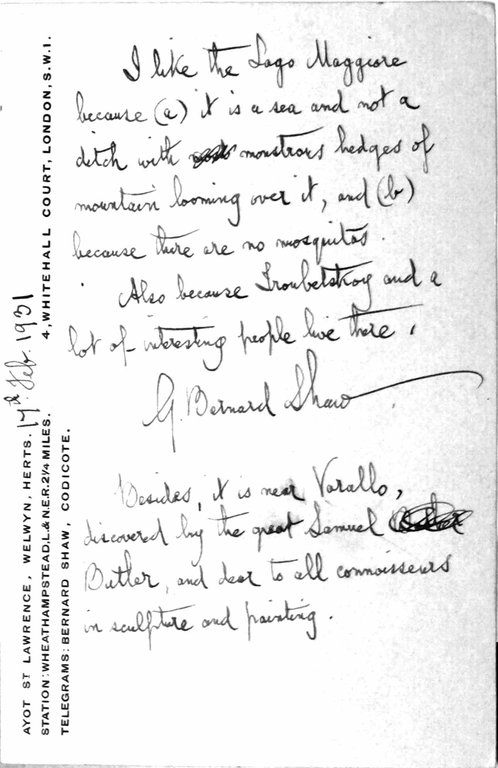 I like the Lago Maggiore
because (a) it is a sea and not a
ditch with monstrous hedges of
mountain looming over it, and (b)
because there are no mosquitos.
Also because Troubetskoy and a
lot of interesting people live there.
G. Bernard Shaw
Besides, it is near Varallo,
discovered by the great Samuel
Butler, and dear to all connoisseurs
in sculpture and painting.
17th Feb. 1931
4, WHITEHALL COURT, LONDON, S.W.1.
AYOT ST LAWRENCE, WELWYN, HERTS.
STATION: WHEATHAMPSTEAD, L.& N.E.R. 2¼ MILES.
TELEGRAMS: BERNARD SHAW, CODICOTE.